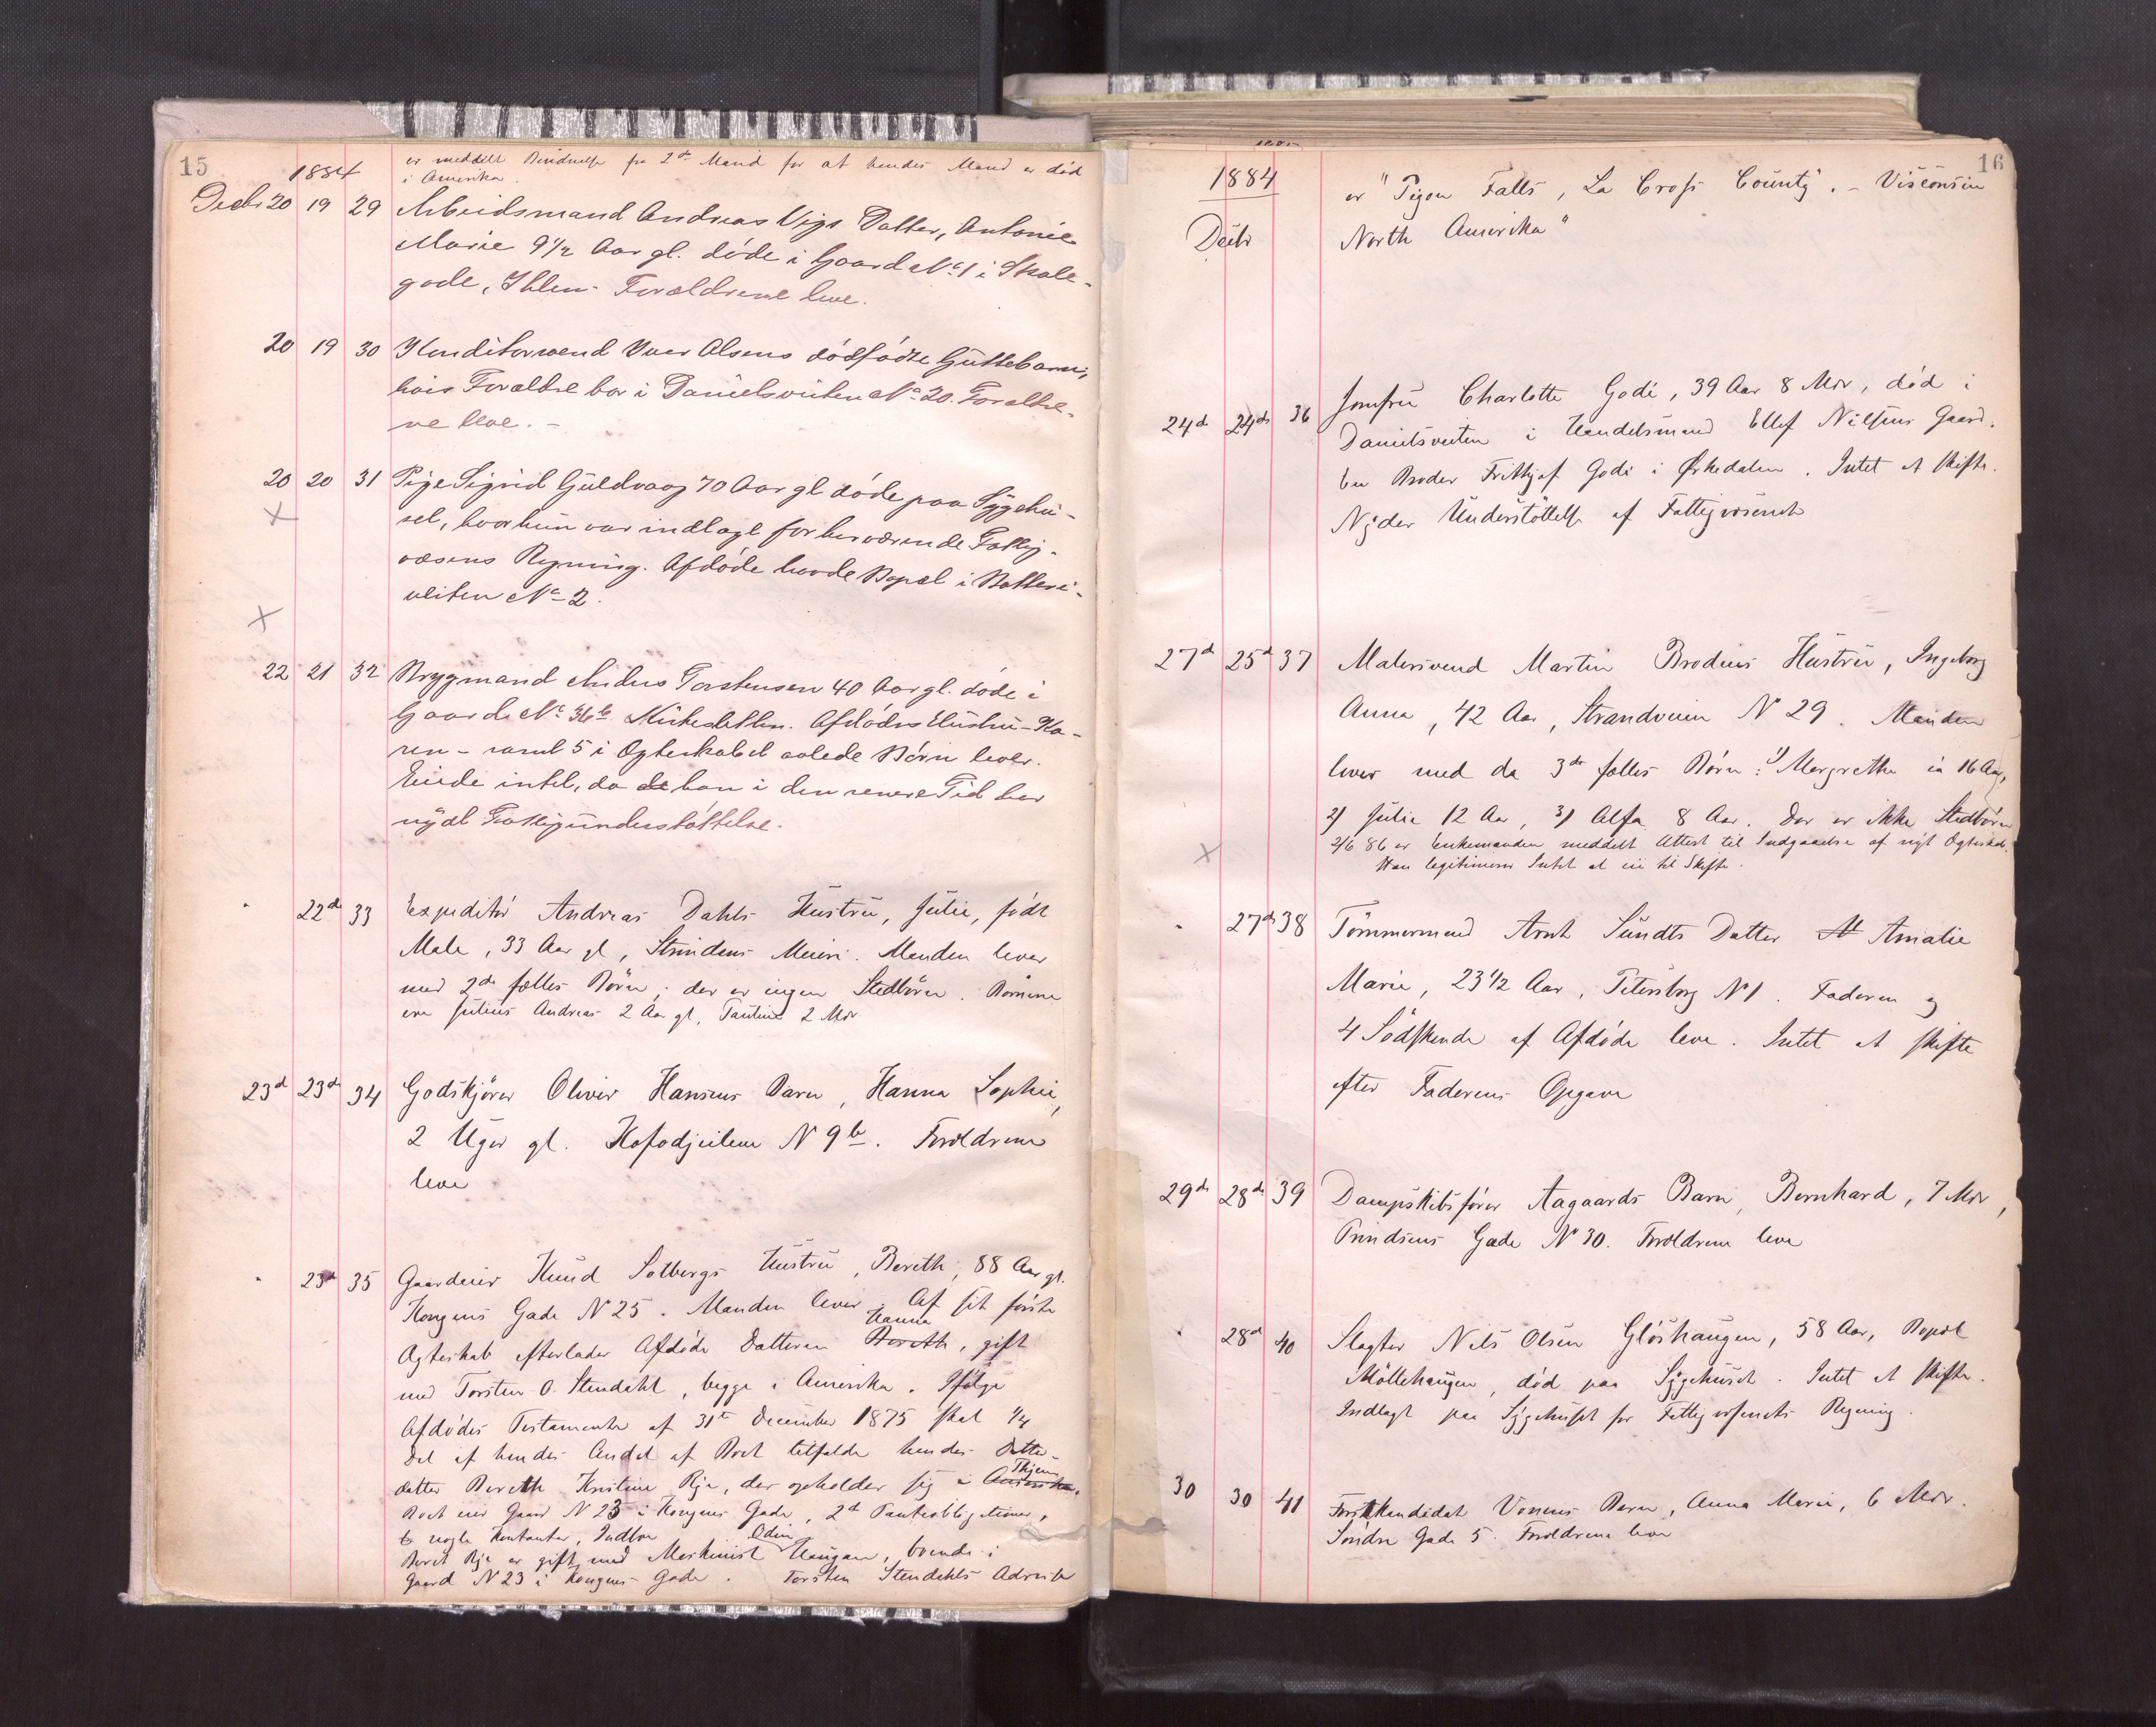 15
1884
er meddelt fra 2den Mand for at hendes Mand er død
i Amerika.
Decbr 20 19 29 Arbeidsmand Andreas Vigs Datter, Antonie
Marie 9 1/2 Aar gl. døde i Gaard No 1 i Skole-
gade, Ihlen. Forældrene leve.
20 19 30 Konditorsvend Iver Olsens dødfødte Guttebarn,
hvis Forældre bor i Danielsveiten No 20. Forældre-
ne leve. -
20 20 31 Pige Sigrid Guldvaag 70 Aar gl døde paa Sygehu-
set, hvor hun var indlagt for herværende Fattig-
væsens Regning. Afdøde havde Bopæl i Batteri-
veiten No 2.
22 21 32 Brygmand Torstensen 40 Aar gl. døde i
Gaard No 36 b Kirkesletten. Afdødes Hustru - Ka-
ren - samt 5 i Ægteskabet avlede Børn lever.
Eiede intet, da de han i den senere Tid har
nydt Fattigunderstøttelse.
" 22de 33 Expeditør Andreas Dahls Hustru, Julie, født
Male, 33 Aar gl, Strindens Meieri. Manden lever
med 2de fælles Børn; der er ingen Stedbørn. Børnene
ere Julius Andreas 2 Aar gl, 2 Mdr
23d 23de 34 Godskjører Oliver Hansens Barn, Hanna Sophie,
2 Uger gl. N 9 b. Forældrene
leve
" 23d 35 Gaardeier Knud Solbergs Hustru, Bereth, 88 Aar gl.
Kongens Gade N 25. Manden lever. Af sit første
Ægteskab efterlader Afdøde Datteren Bereth Hanna, gift
med Torsten O. Stendahl, begge i Amerika. Ifølge
Afdødes Testamente af 31te December 1875 skal 1/4
Del af hendes Andel af Boet tilfalde hendes Datter-
datter Bereth Kristine Rye, der opholder sig i Amerika. Thjem
Boet eier Gaard N 23 i Kongens Gade, 2d Panteobligationer,
nogle Kontanter, Indbo
Beret Rye er gift med Maskinist Odin Haugan, boende i
Gaard N 23 i Kongens Gade. Torsten Stendahls Adresse
16
1884
Decbr
er "Pigon Falls, La Cross County". - Visconsin
North Amerika"
24d 24de 36 Jomfru Charlotte Godi, 39 Aar 8 Mdr, død i
Danielsveiten i Handelsmand Ellef Nilsens Gaard.
En Broder Frithjof Godi i Ørkedalen. Intet at skifte.
Nyder Understøttelse af Fattigvæsenet
27d 25d 37 Malersvend Martin Brodins Hustru, Ingeborg
Anna, 42 Aar, Strandveien N 29. Manden
lever med da 3de fælles Børn: 1) Margrethe 16 Aar,
2) Julie 12 Aar, 3) Alfa 8 Aar. Der er ikke Stedbørn
2/6 86 er Enkemanden meddelt Attest til Indgaaelse af nyt Ægteskab.
Han legitimerer Intet at eie til Skifte.
" 27de 38 Tømmermand Arnt Sundts Datter At Amalie
Marie, 23 1/2 Aar, Petersborg N 1. Faderen og
4 Sødskende af Afdøde leve. Intet at skifte
efter Faderens Opgave
29de 28de 39 Dampskibsfører Aagaards Barn, Bernhard, 7 Mdr,
Prindsens Gade N 30. Forældrene leve
" 28d 40 Slagter Nils Olsen Gløshaugen, 58 Aar, Bopæl
Møllehaugen, død paa Sygehuset. Intet at skifte.
Indlagt paa Sygehuset for Fattigvæsenets Regning.
30 30 41 Forstkandidat Barn, Anna Marie, 6 Mdr.
Søndre Gade 5. Forældrene leve